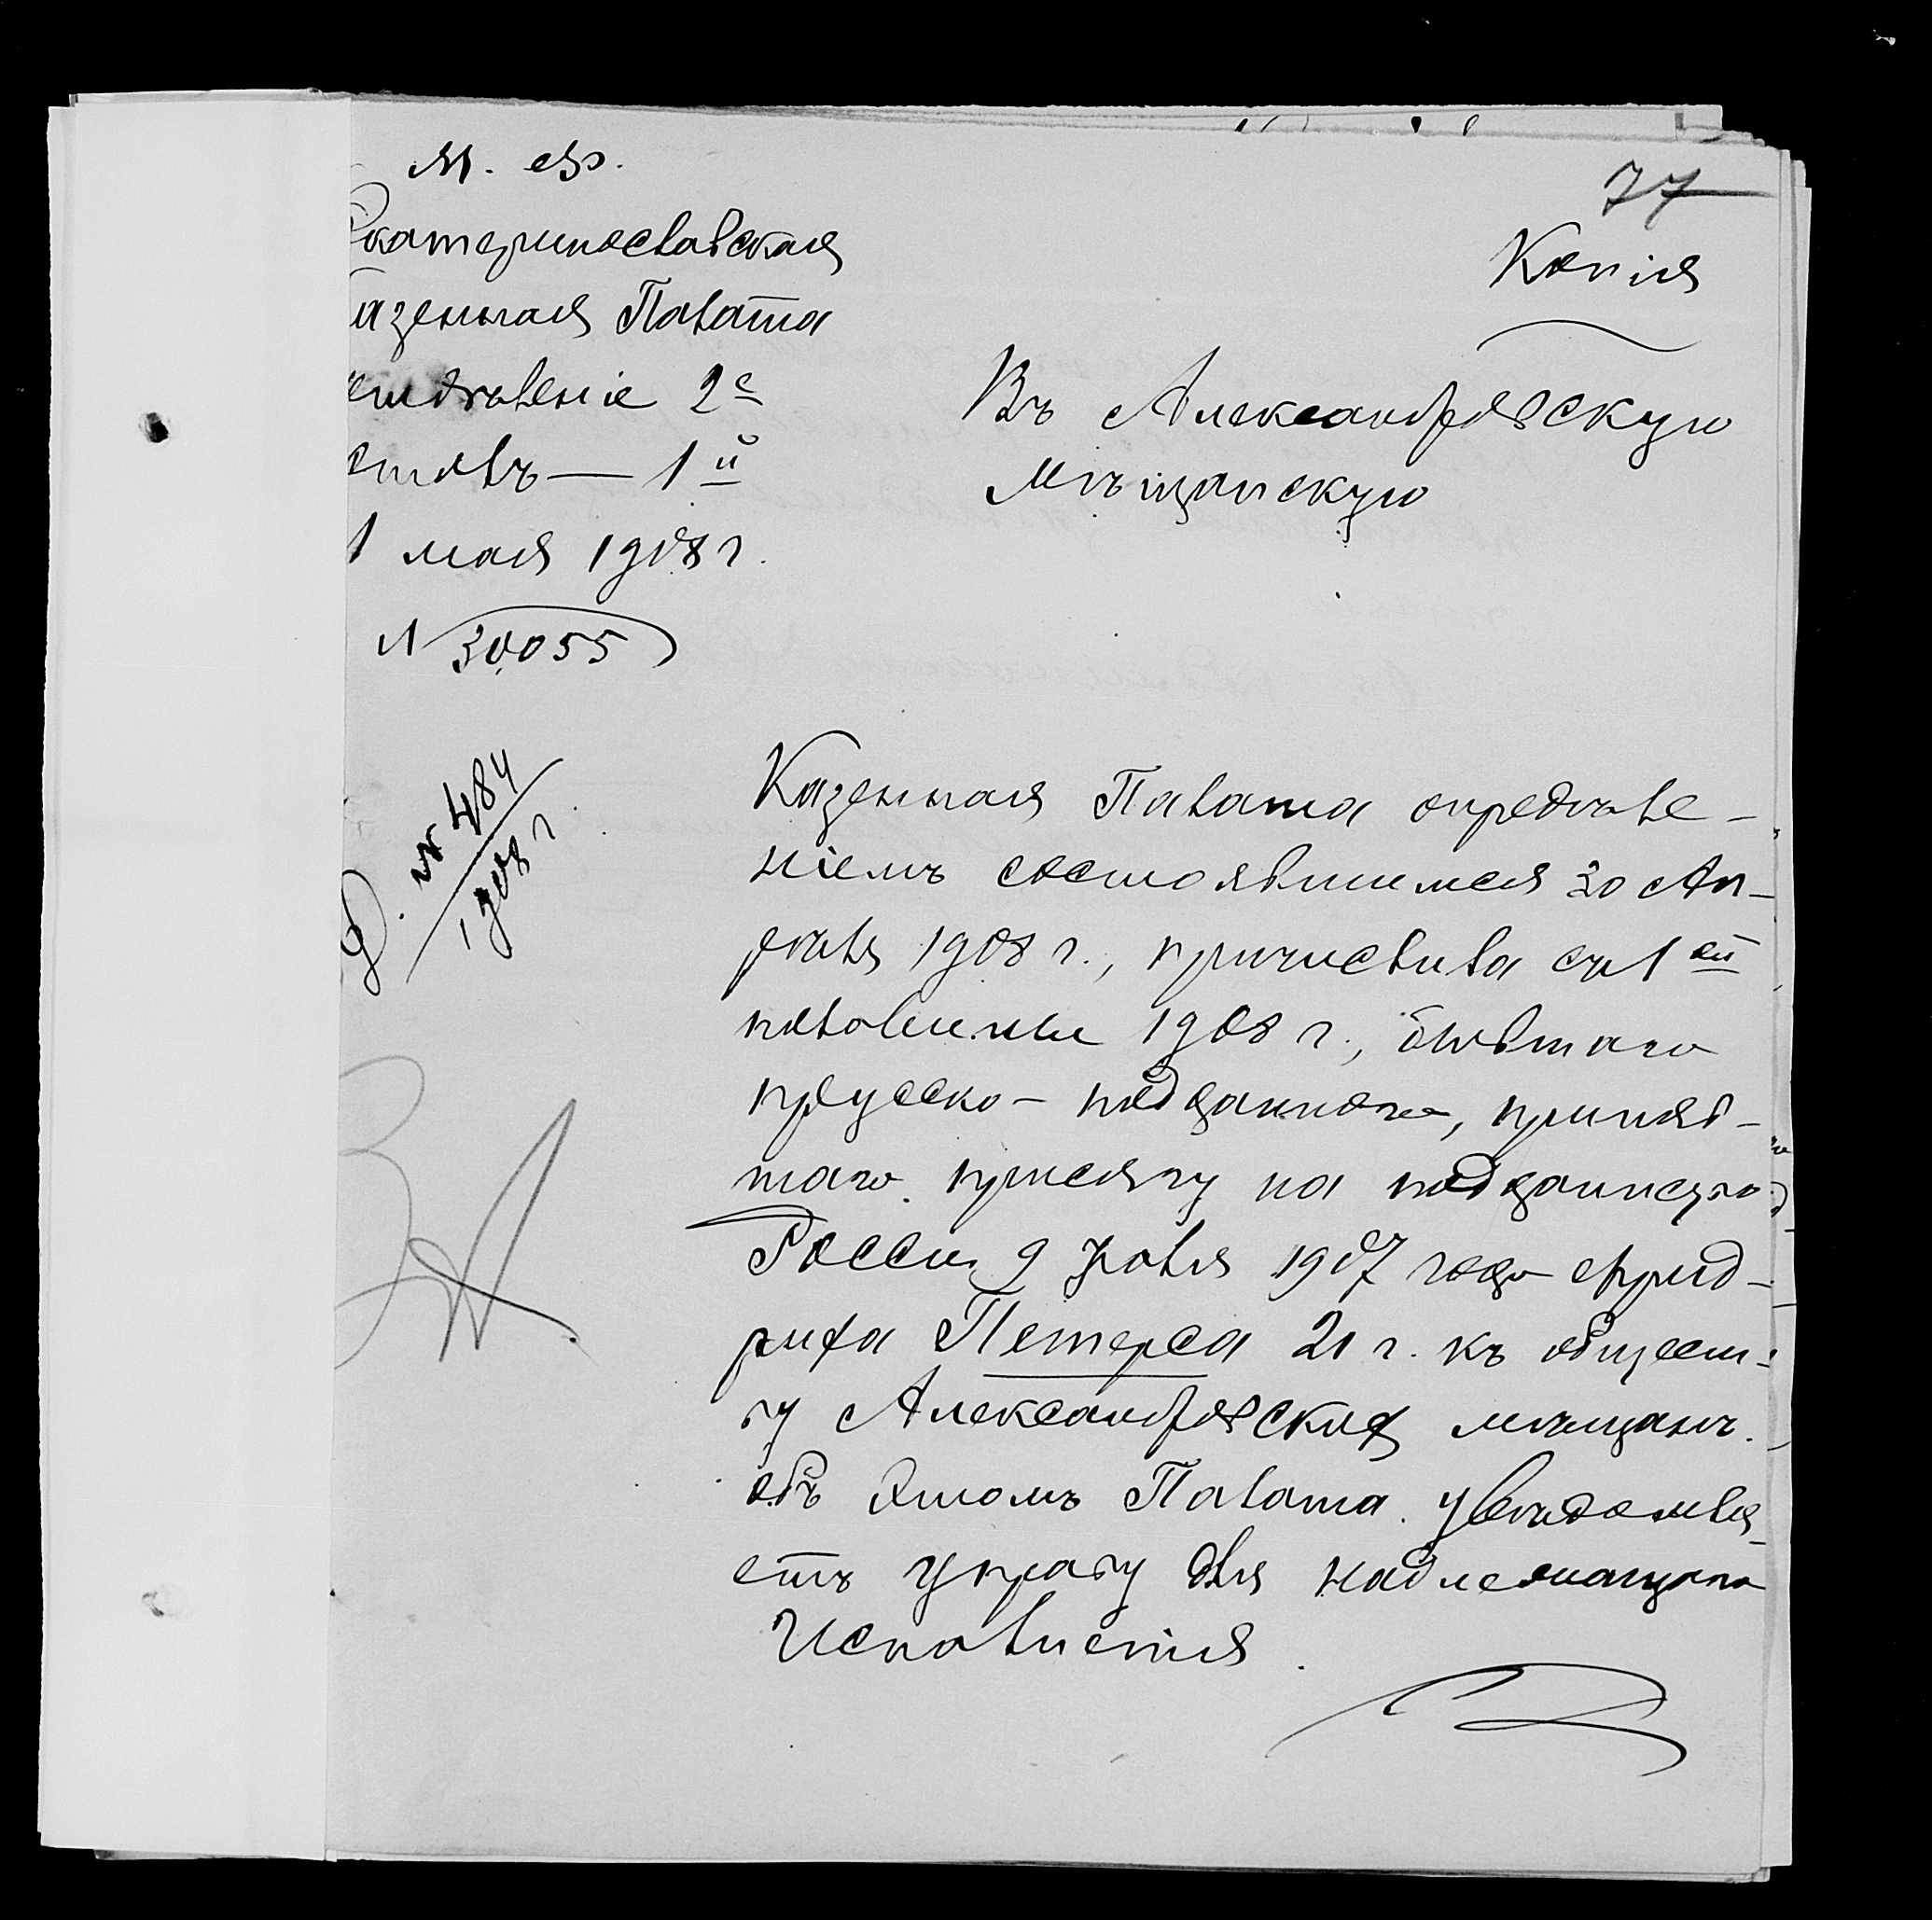 М. Ф.
Екатеринославская
Казенная Палата
Отдѣленіе 2е
столъ — 1й
1 мая 1908 г.
№ 30055
77
Копія
Въ Александровскую
Мѣщанскую
Д. № 484
1908 г.
Казенная Палата опредѣле-
ніемъ состоявшимся 30 Ап-
рѣля 1908 г., причислила съ 1ой
половины 1908 г., бывшаго
прусско-подданнаго, приняв-
шаго присягу на подданство
Россіи 9 Іюля 1907 года Фрид-
риха Петерса 21 г. къ общест-
ву Александровскихъ мѣщанъ.
объ этомъ Палата увѣдомля-
етъ управу для надлежащаго
исполненія.